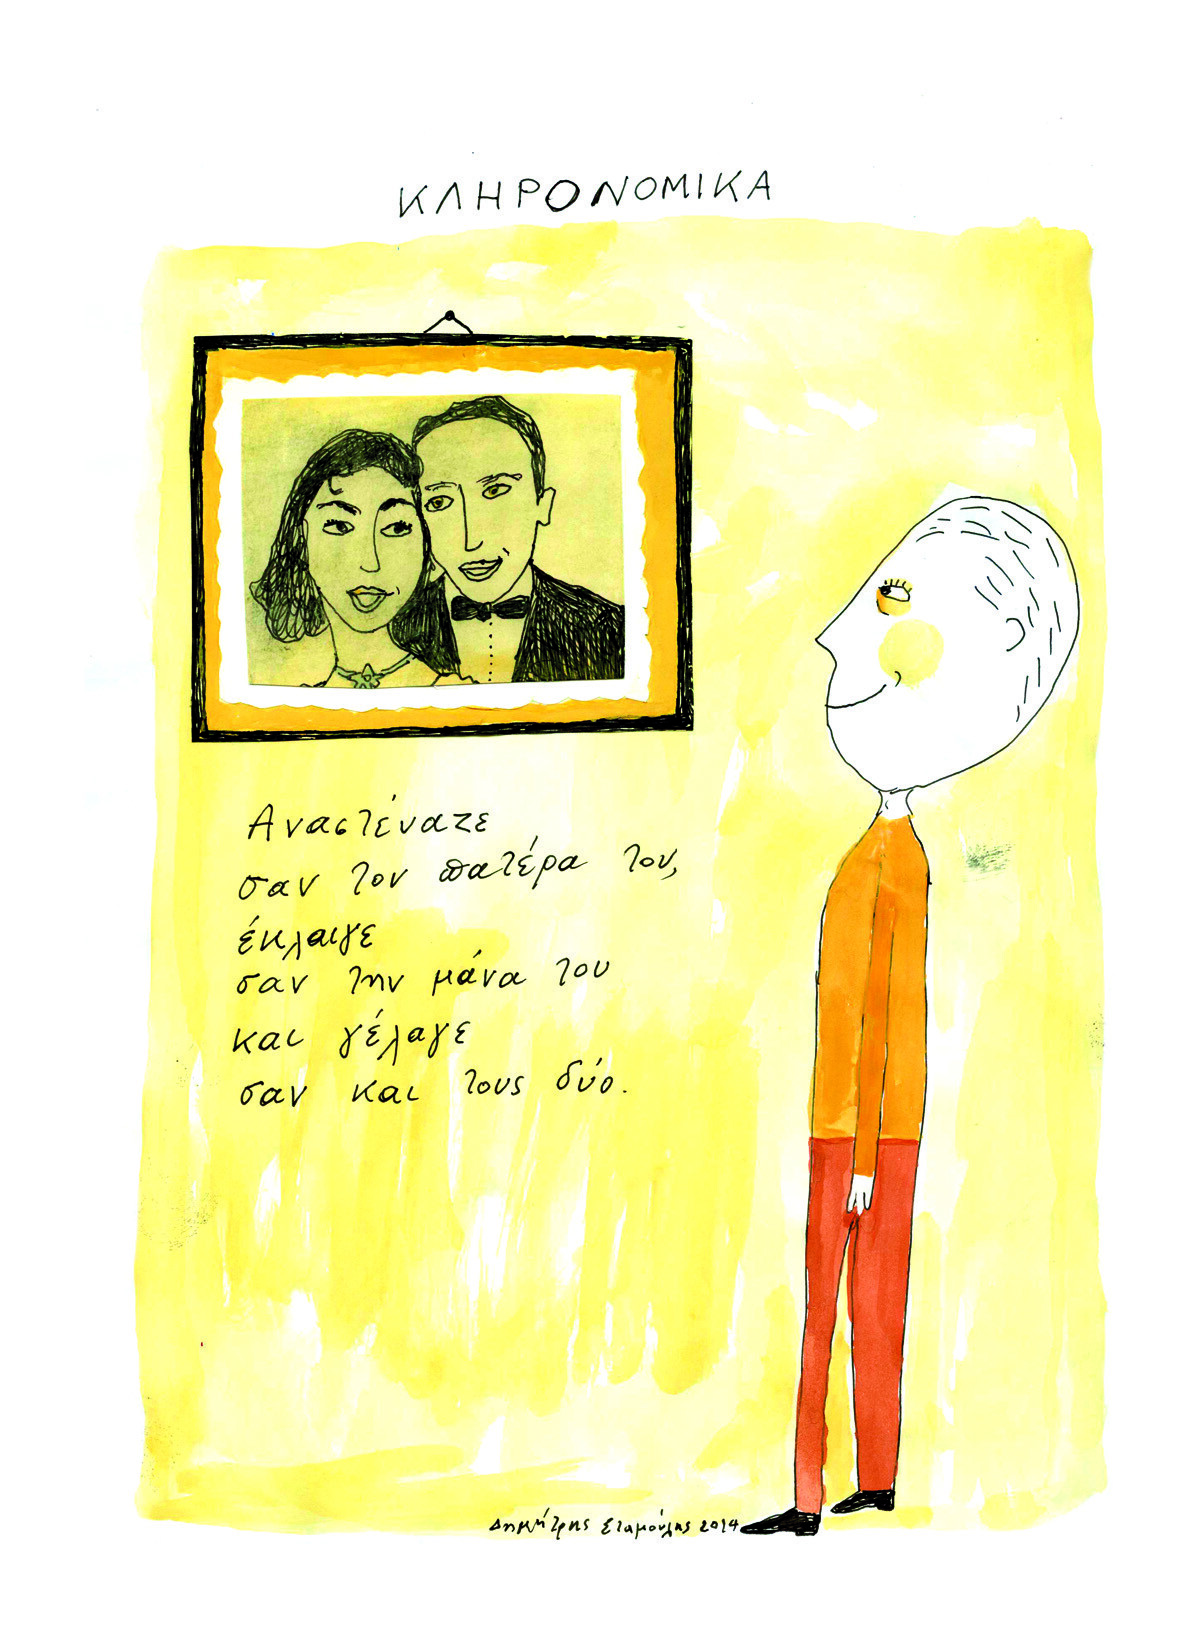 ΚΛΗΡΟΝΟΜΙΚΑ
Αναστέναζε
σαν τον πατέρα του,
έκλαιγε
σαν την μάνα του
και γέλαγε
σαν και τους δύο.
Δημήτρης Σταμούλης 2014